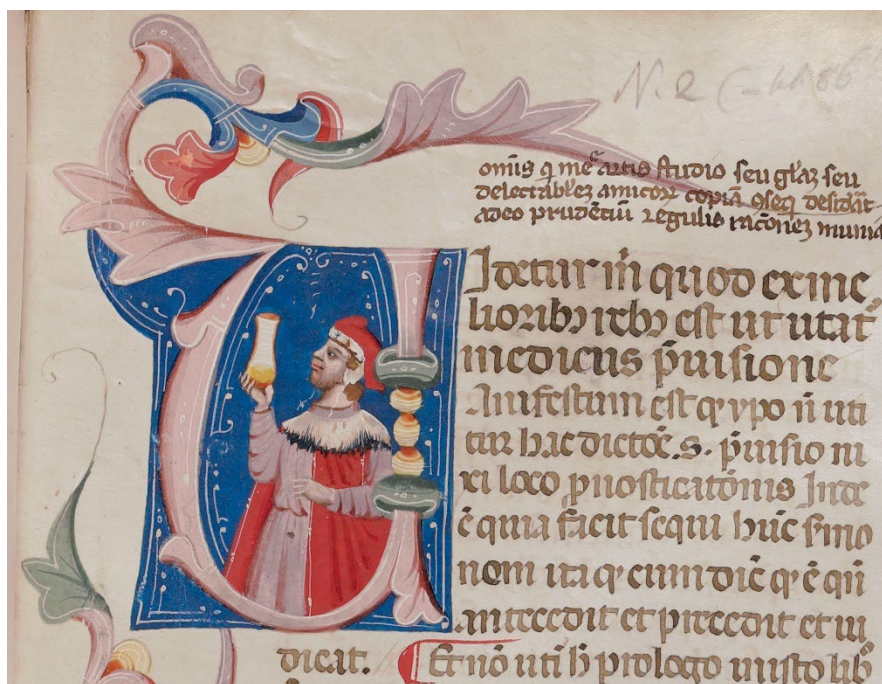 omīs q me artis studio seu gľaꝫ seu
delectabľeꝫ amicoꝝ copiā ꝯseq desidāt
adeo prudētiū regulis racōneꝫ munia
UIdetur m̄ quod ex me
lioribꝫ rebꝫ est ut utat᷑
medicus p̄uisione
Manifestum est ꝙ ypo n̄ uti
tur hac dictōe .s. p̄uisio ni
xi loco ꝓnosticatōnis Inde
ē quia facit sequi hūc s̄mo
nem ita ꝙ cum dic̄ ꝙ ē qn̄
antecedit et precedit et iu
dicat. Et nō uti h̄ prologo in isto lib